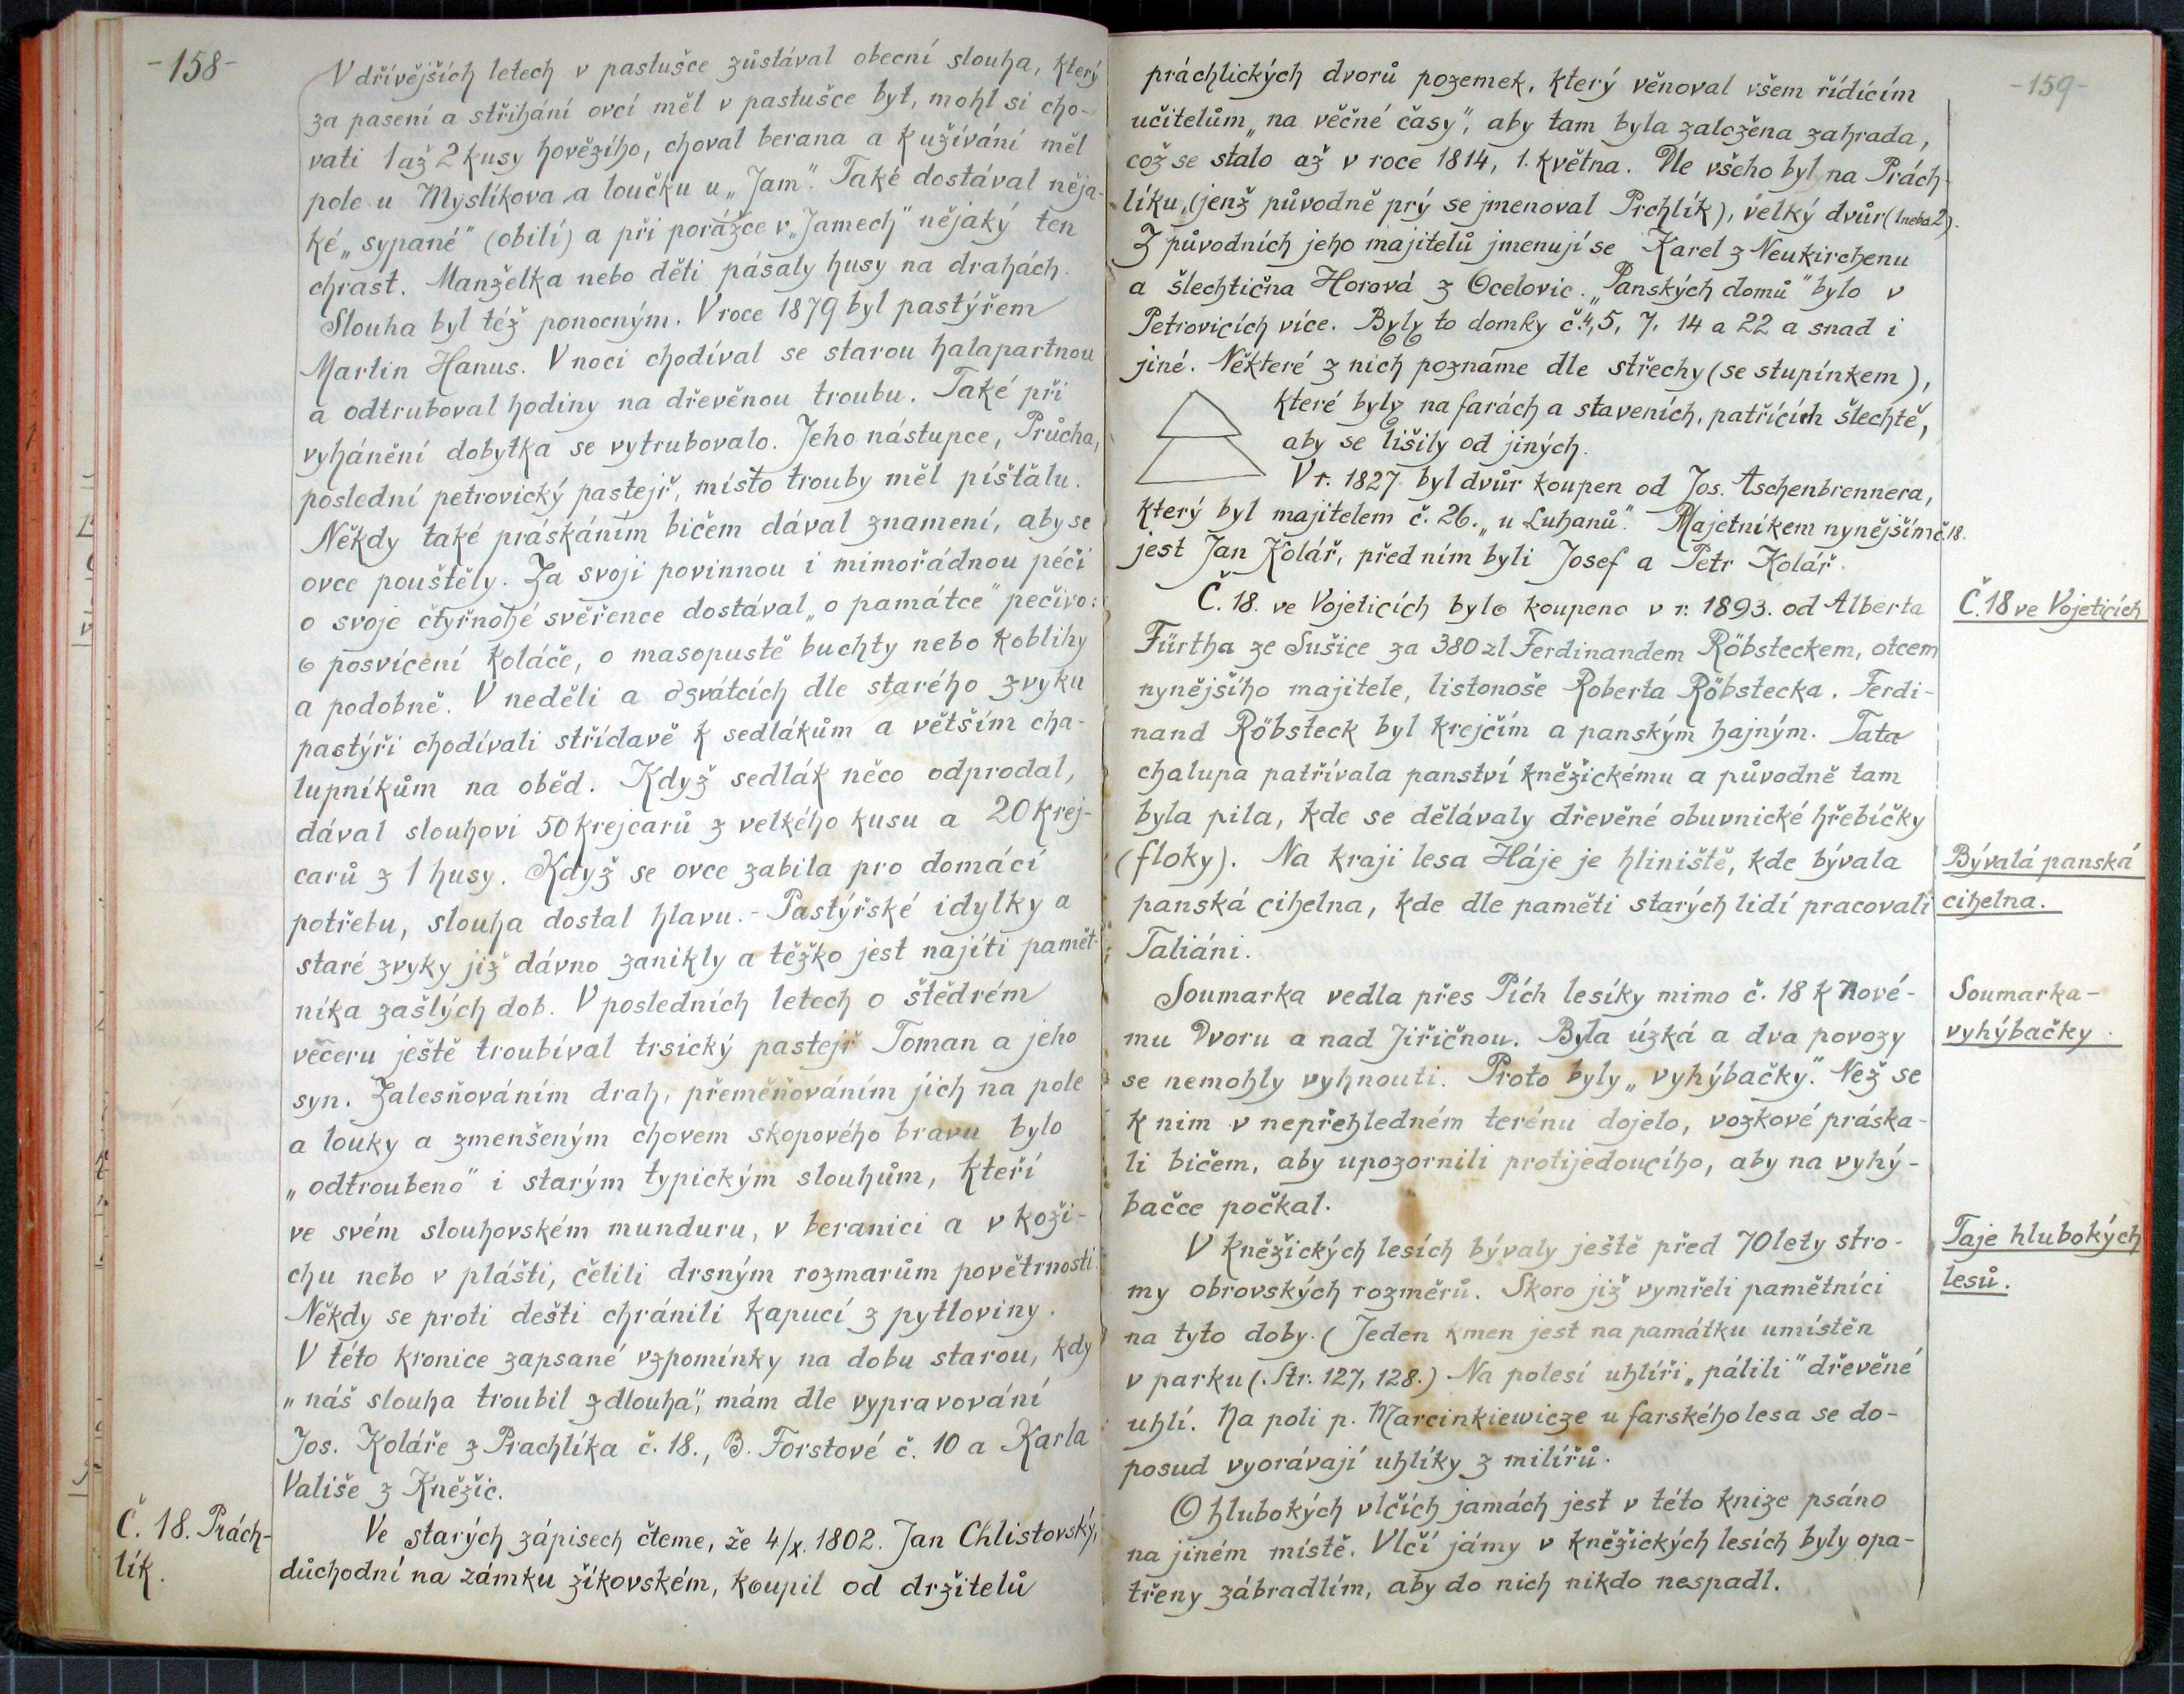 -158-
V dřívějších letech v pastušce zůstával obecní slouha, který
za pasení a stříhání ovcí měl v pastušce byt, mohl si cho-
vati 1 až 2 kusy hovězího, choval berana a k užívání měl
pole u Myslíkova a loučku u „Jam“. Také dostával něja-
ké „sypané“ (obilí) a při porážce v „Jamech“ nějaký ten
chrast. Manželka nebo děti pásaly husy na drahách.
Slouha byl též ponocným. V roce 1879 byl pastýřem
Martin Hanus. V noci chodíval se starou halapartnou
a odtruboval hodiny na dřevěnou troubu. Také při
vyhánění dobytka se vytrubovalo. Jeho nástupce, Průcha,
poslední petrovický pastejř, místo trouby měl píšťalu.
Někdy také práskáním bičem dával znamení, aby se
ovce pouštěly. Za svoji povinnou i mimořádnou péči
o svoje čtyřnohé svěřence dostával „o památce“ pečivo:
o posvícení koláče, o masopustě buchty nebo koblihy
a podobně. V neděli a o svátcích dle starého zvyku
pastýři chodívali střídavě k sedlákům a větším cha-
lupníkům na oběd. Když sedlák něco odprodal,
dával slouhovi 50 krejcarů z velkého kusu a 20 krej-
carů z 1 husy. Když se ovce zabila pro domácí
potřebu, slouha dostal hlavu. - Pastýřské idylky a
staré zvyky již dávno zanikly a těžko jest najíti pamět-
níka zašlých dob. V posledních letech o štědrém
večeru ještě troubíval trsický pastejř Toman a jeho
syn. Zalesňováním drah, přeměňováním jich na pole
a louky a zmenšeným chovem skopového bravu bylo
„odtroubeno“ i starým typickým slouhům, kteří
ve svém slouhovském munduru, v beranici a v koži-
chu nebo v plášti, čelili drsným rozmarům povětrnosti.
Někdy se proti dešti chránili kapucí z pytloviny.
V této kronice zapsané vzpomínky na dobu starou, kdy
„náš slouha troubil zdlouha“, mám dle vypravování
Jos. Koláře z Prachlíka č. 18., B. Forstové č. 10 a Karla
Vališe z Kněžic.
Č. 18. Prách-
lík.
Ve starých zápisech čteme, že 4/X. 1802. Jan Chlistovský,
důchodní na zámku žíkovském, koupil od držitelů
-159-
práchlických dvorů pozemek, který věnoval všem řídícím
učitelům „na věčné časy“, aby tam byla založena zahrada,
což se stalo až v roce 1814, 1. května. Dle všeho byl na Prách-
líku, (jenž původně prý se jmenoval Prchlík), velký dvůr (1 neba 2).
Z původních jeho majitelů jmenují se Karel z Neukirchenu
a šlechtična Horová z Ocelovic. „Panských domů“ bylo v
Petrovicích více. Byly to domky č. 4, 5, 7, 14 a 22 a snad i
jiné. Některé z nich poznáme dle střechy (se stupínkem),
které byly na farách a staveních, patřících šlechtě,
aby se lišily od jiných.
V r. 1827 byl dvůr koupen od Jos. Aschenbrennera,
který byl majitelem č. 26. „u Luhanů“. Majetníkem nynějším č. 18.
jest Jan Kolář, před ním byli Josef a Petr Kolář.
Č. 18 ve Vojeticích
Č. 18. ve Vojeticích bylo koupeno v r. 1893. od Alberta
Fürtha ze Sušice za 380 zl Ferdinandem Röbsteckem, otcem
nynějšího majitele, listonoše Roberta Röbstecka. Ferdi-
nand Röbsteck byl krejčím a panským hajným. Tato
chalupa patřívala panství kněžickému a původně tam
byla pila, kde se dělávaly dřevěné obuvnické hřebíčky
(floky). Na kraji lesa Háje je hliniště, kde bývala
panská cihelna, kde dle paměti starých lidí pracovali
Taliáni.
Bývalá panská
cihelna.
Soumarka vedla přes Pích lesíky mimo č. 18 k Nové-
mu Dvoru a nad Jiřičnou. Byla úzká a dva povozy
se nemohly vyhnouti. Proto byly „vyhýbačky“. Než se
k nim v nepřehledném terénu dojelo, vozkové práska-
li bičem, aby upozornili protijedoucího, aby na vyhý-
bačce počkal.
Soumarka -
vyhýbačky.
V kněžických lesích bývaly ještě před 70 lety stro-
my obrovských rozměrů. Skoro již vymřeli pamětníci
na tyto doby. (Jeden kmen jest na památku umístěn
v parku (. Str. 127, 128.) Na polesí uhlíři „pálili“ dřevěné
uhlí. Na poli p. Marcinkiewicze u farského lesa se do-
posud vyorávají uhlíky z milířů.
Taje hlubokých
lesů.
O hlubokých vlčích jamách jest v této knize psáno
na jiném místě. Vlčí jámy v kněžických lesích byly opa-
třeny zábradlím, aby do nich nikdo nespadl.